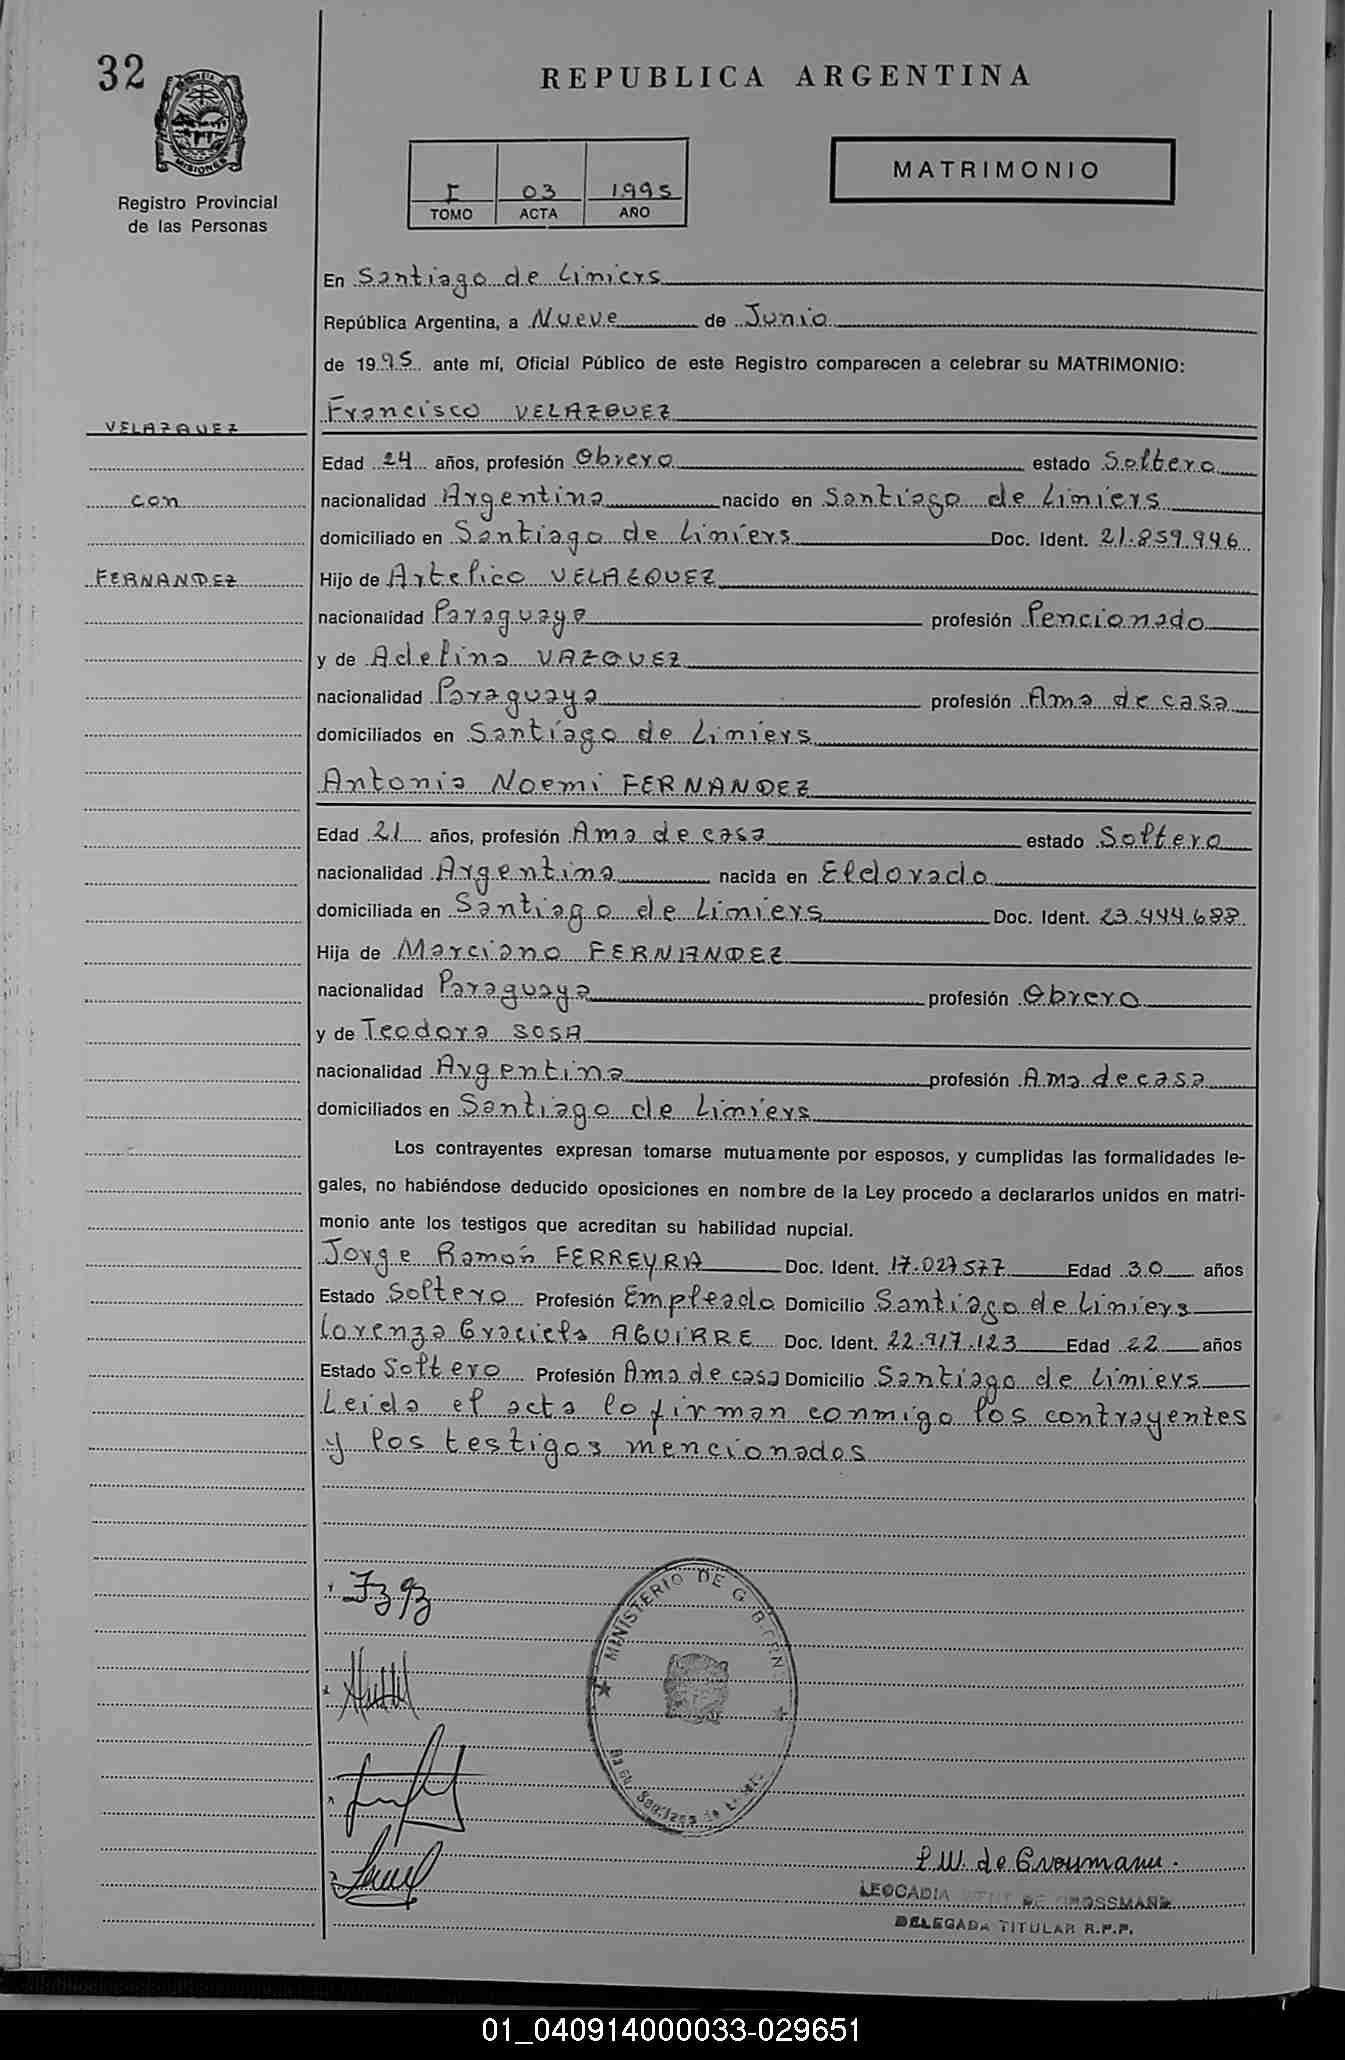 32
REPUBLICA ARGENTINA
MISIONES
Registro Provincial
de las Personas
I 03 1995
TOMO ACTA AÑO
MATRIMONIO
En Santiago de Liniers
República Argentina, a Nueve de Junio
de 1995 ante mí, Oficial Público de este Registro comparecen a celebrar su MATRIMONIO:
Francisco VELAZQUEZ
VELAZQUEZ
Edad 24 años, profesión Obrero estado Soltero
con
nacionalidad Argentina nacido en Santiago de Liniers
domiciliado en Santiago de Liniers Doc. Ident. 21.859.946
FERNANDEZ
Hijo de Artelico VELAZQUEZ
nacionalidad Paraguaya profesión Pencionado
y de Adelina VAZQUEZ
nacionalidad Paraguaya profesión Ama de casa
domiciliados en Santiago de Liniers
Antonia Noemi FERNANDEZ
Edad 21 años, profesión Ama de casa estado Soltero
nacionalidad Argentina nacida en Eldorado
domiciliada en Santiago de Liniers Doc. Ident. 23.444.688
Hija de Marciano FERNANDEZ
nacionalidad Paraguaya profesión Obrero
y de Teodora SOSA
nacionalidad Argentina profesión Ama de casa
domiciliados en Santiago de Liniers
Los contrayentes expresan tomarse mutuamente por esposos, y cumplidas las formalidades le-
gales, no habiéndose deducido oposiciones en nombre de la Ley procedo a declararlos unidos en matri-
monio ante los testigos que acreditan su habilidad nupcial.
Jorge Ramón FERREYRA Doc. Ident. 17.027577 Edad 30 años
Estado Soltero Profesión Empleado Domicilio Santiago de Liniers
Lorenza Graciela AGUIRRE Doc. Ident. 22.917.123 Edad 22 años
Estado Soltero Profesión Ama de casa Domicilio Santiago de Liniers
Leida el acta lo firman conmigo los contrayentes
y los testigos mencionados
MINISTERIO DE
Santiago de
L W. de Grossmann.
LEOCADIA DE GROSSMANN
DELEGADA TITULAR R.P.P.
01_040914000033-029651